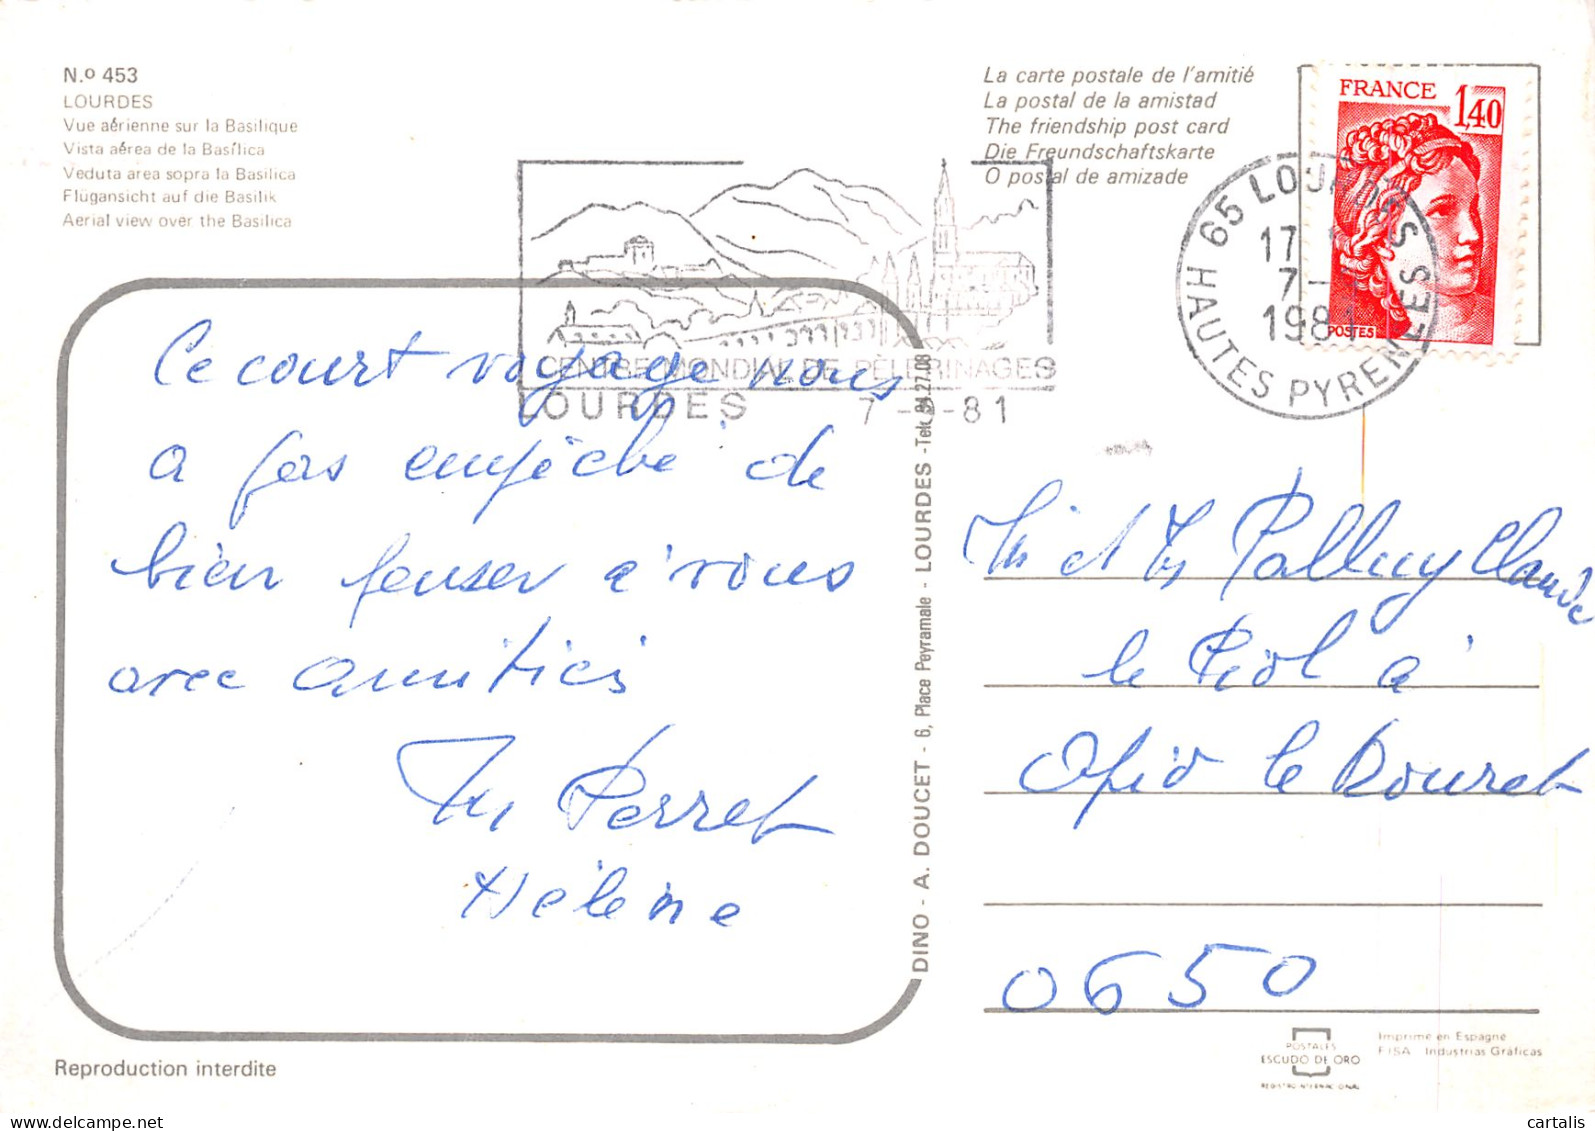 N.º 453
LOURDES
Vue aérienne sur la Basilique
Vista aérea de la Basílica
Veduta area sopra la Basilica
Flügansicht auf die Basilik
Aerial view over the Basilica
La carte postale de l'amitié
La postal de la amistad
The friendship post card
Die Freundschaftskarte
O postal de amizade
FRANCE
1,40
POSTES
65 LOURDES
17
7 -
1981
HAUTES PYRENEES
CENTRE MONDIAL DE PÈLERINAGES
LOURDES 7 - - 81
Ce court voyage nous
a pas empêché de
bien penser à vous
avec amitiés
Perret
Hélène
DINO - A. DOUCET - 6, Place Peyramale - LOURDES - Tel. 94.27.08
Mr et Pallny Claude
le Riol à
Opio le Rouret
0650
Reproduction interdite
POSTALES
ESCUDO DE ORO
REGISTRO INTERNACIONAL
Imprimé en Espagne
FISA Industrias Gráficas
cartalis